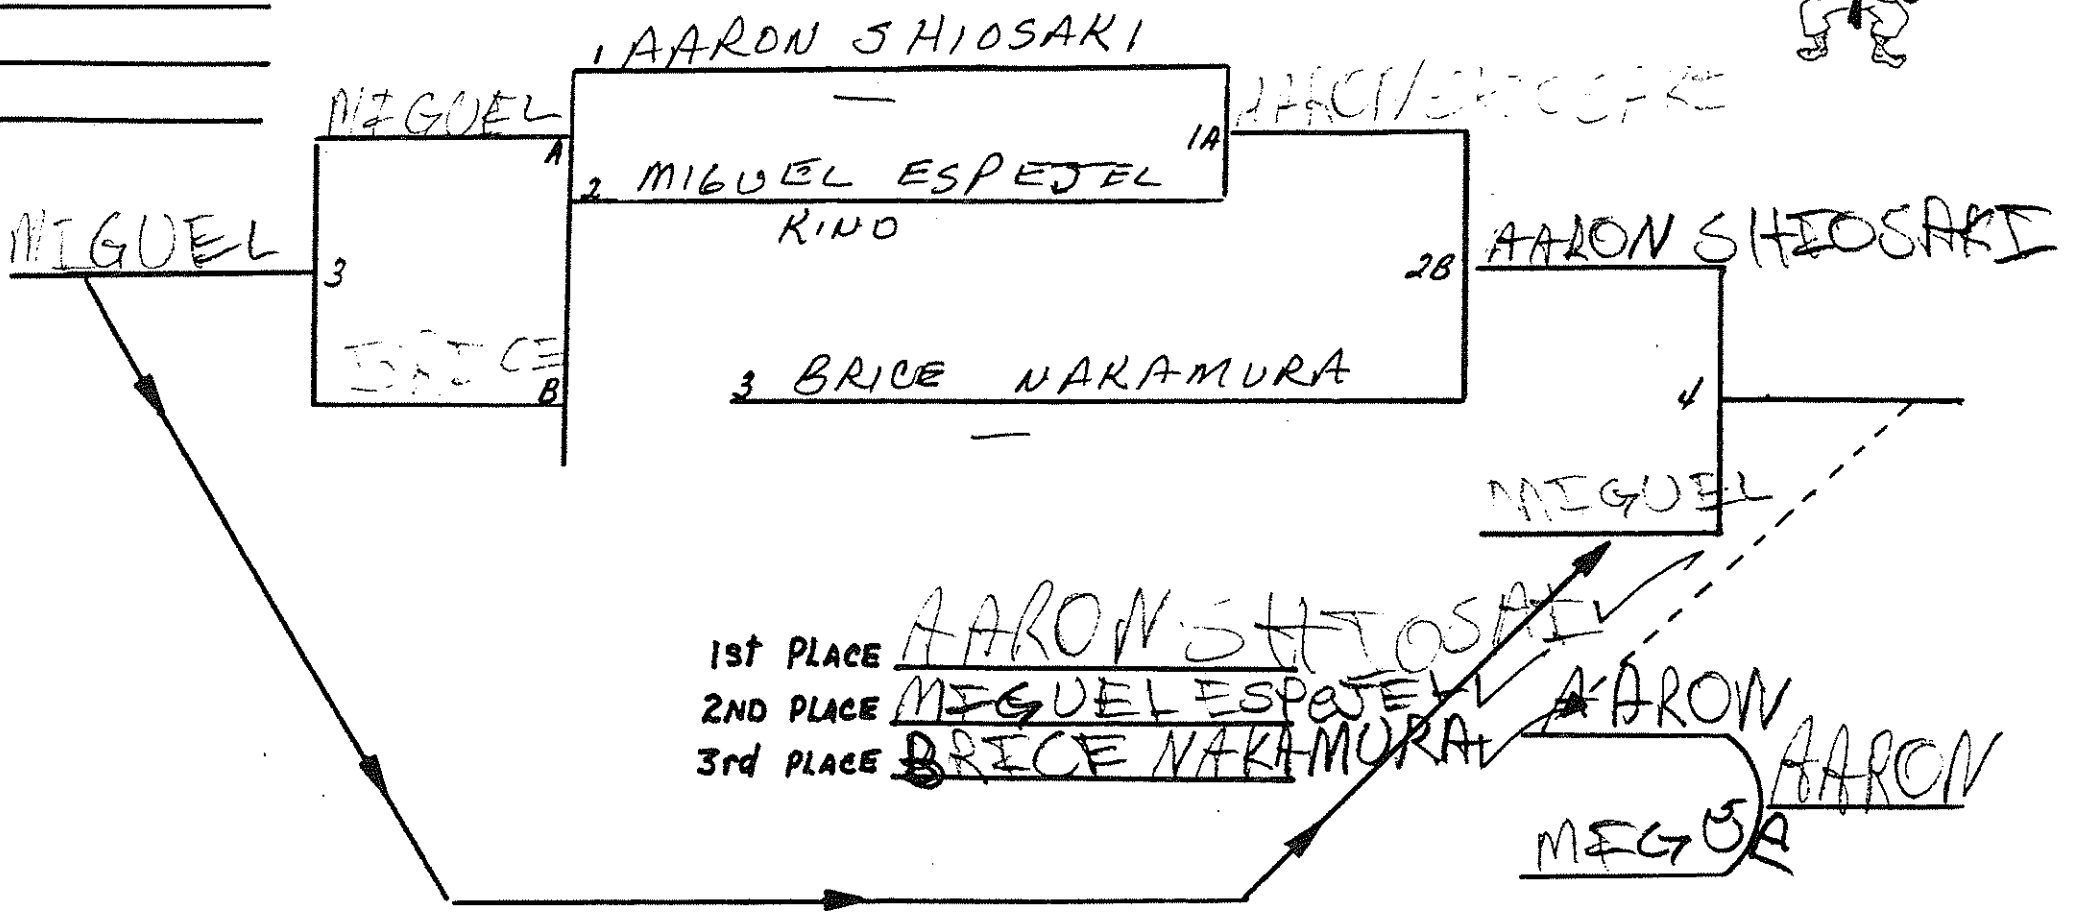 1 AARON SHIOSAKI
MIGUEL
A
1A
2 MIGUEL ESPEJEL
KINO
MIGUEL
3
AARON SHIOSAKI
2B
B
3 BRICE NAKAMURA
4
MIGUEL
1st PLACE AARON SHIOSAI
2ND PLACE MIGUEL ESPEJEL
3rd PLACE BRICE NAKAMURA
AARON
AARON
5